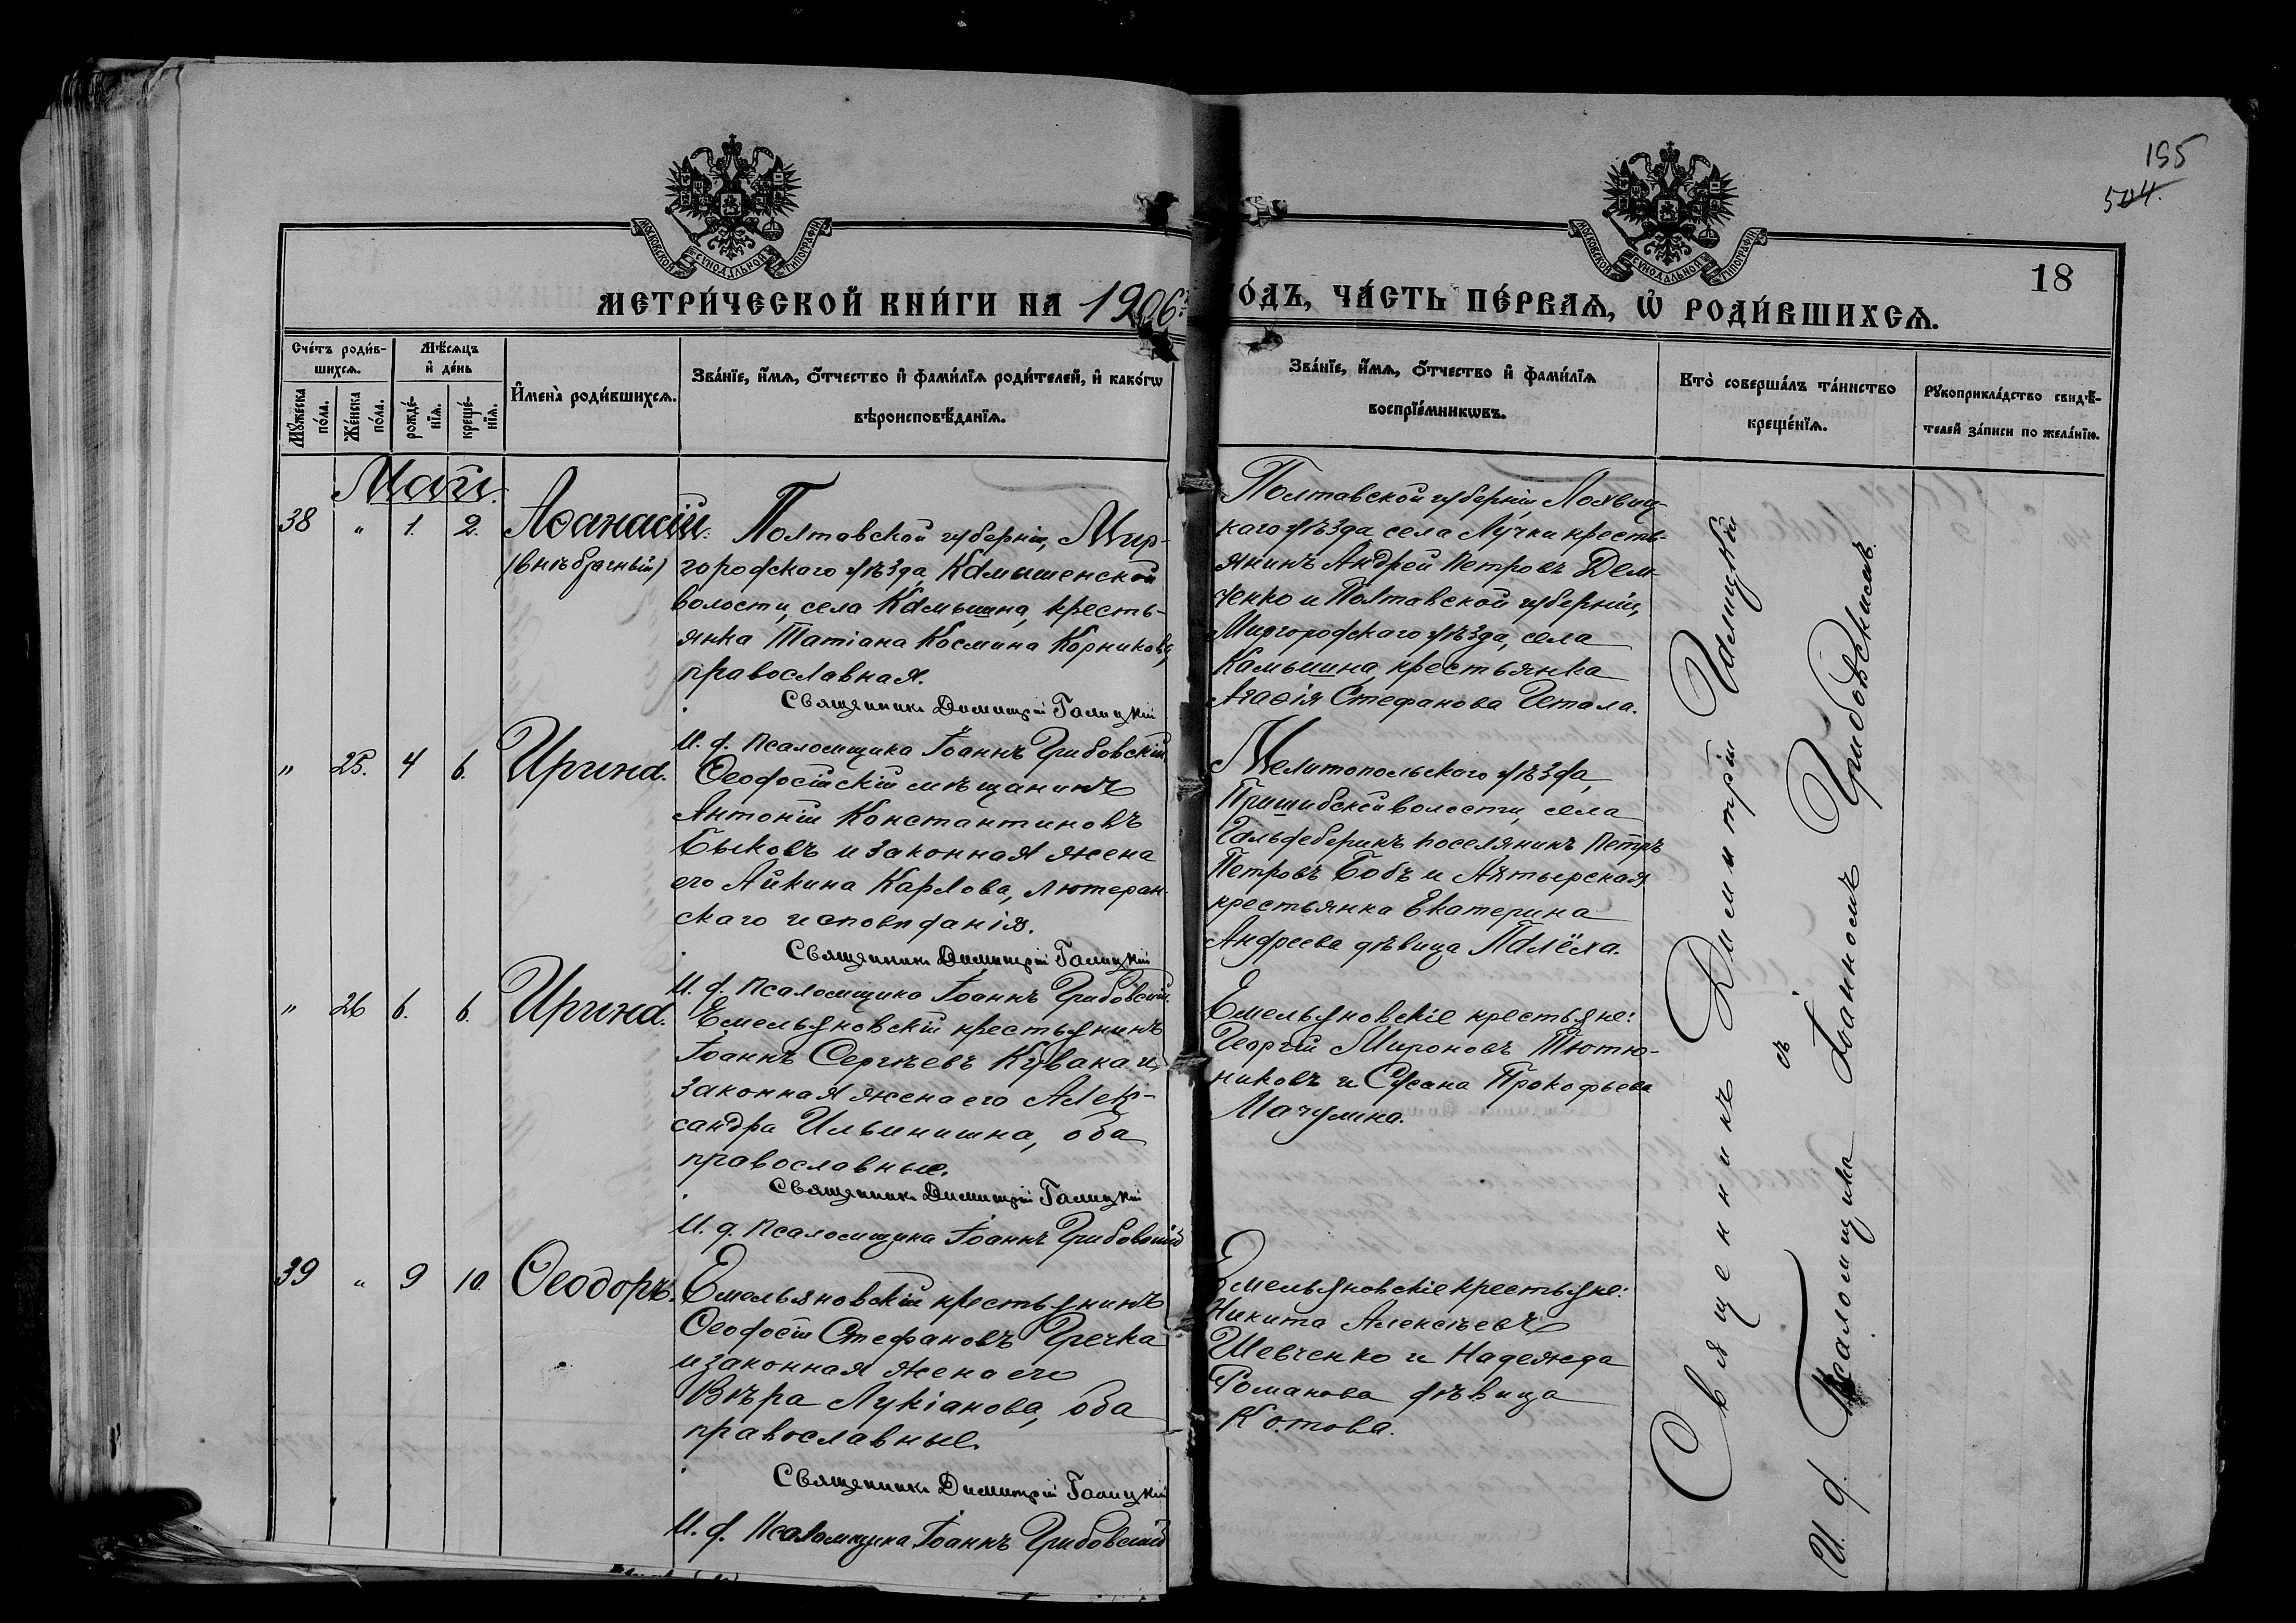 195
504.
МОСКОВСКОЙ СУНОДАЛЬНОЙ ТИПОГРАФІИ
МОСКОВСКОЙ СУНОДАЛЬНОЙ ТИПОГРАФІИ
18
МЕТРИ́ЧЕСКОЙ КНИ́ГИ НА 1906 ГО́ДЪ, ЧА́СТЬ ПЕ́РВАѦ, Ѡ҆ РОДИ́ВШИХСѦ.
Сче́тъ роди́в-
шихсѧ.
Мѣ́сѧцъ
и҆ де́нь
Мꙋ́жеска
по́ла.
Же́нска
по́ла.
рожде́-
нїѧ.
креще́-
нїѧ.
И҆мена̀ роди́вшихсѧ.
Зва́нїе, и҆́мѧ, ѻ҆́тчество и҆ фами́лїѧ роди́телей, и҆ како́гѡ
вѣроисповѣ́данїѧ.
Зва́нїе, и҆́мѧ, ѻ҆́тчество и҆ фами́лїѧ
воспрїе́мникѡвъ.
Кто̀ соверша́лъ та́инство
креще́нїѧ.
Рꙋкоприкла́дство свидѣ́-
телей за́писи по жела́нїю.
Май.
38 " 1. 2. Аѳанасій.
(внѣбрачный)
Полтавской губерніи, Мир-
городскаго уѣзда, Камышенской
волости, села Камышна, кресть-
янка Татіана Космина Корникова,
православная.
Священникъ Димитрій Галицкій
И. д. Псаломщика Іоаннъ Грибовскій.
Полтавской губерніи, Лохвиц-
каго уѣзда села Лучка кресть-
янинъ Андрей Петровъ Дем-
ченко и Полтавской губерніи,
Миргородскаго уѣзда, села
Камышна, крестьянка
Агаѳія Стефанова
" 25. 4 6. Ирина.
Ѳеодосійскій мѣщанинъ
Антоній Константиновъ
Быковъ и законная жена
его Карлова, лютеран-
скаго исповѣданія.
Священникъ Димитрій Галицкій
И. д. Псаломщика Іоаннъ Грибовскій.
Мелитопольскаго уѣзда,
Пришибской волости, села
поселянинъ Петръ
Петровъ Бобъ и Ахтырская
крестьянка Екатерина
Андреева дѣвица
" 26 6. 6. Ирина.
Емельяновскій крестьянинъ
Іоаннъ Сергѣевъ Кувака и
законная жена его Алек-
сандра Ильинишна, оба
православные.
Священникъ Димитрій Галицкій
И. д. Псаломщика Іоаннъ Грибовскій
Емельяновскіе крестьяне:
Георгій Мироновъ Тютю-
никовъ и Сусана Прокофьева
Мачулина.
39 " 9 10. Ѳеодоръ.
Емельяновскій крестьянинъ
Ѳеодосій Стефановъ Гречка
и законная жена его
Вѣра Лукіанова, оба
православные.
Священникъ Димитрій Галицкій
И. д. Псаломщика Іоаннъ Грибовскій
Емельяновскіе крестьяне:
Никита Алексѣевъ
Шевченко и Надежда
Романова дѣвица
Котова.
Священникъ Димитрій Галицкій
съ
И. д. Псаломщика Іоанномъ Грибовскимъ.